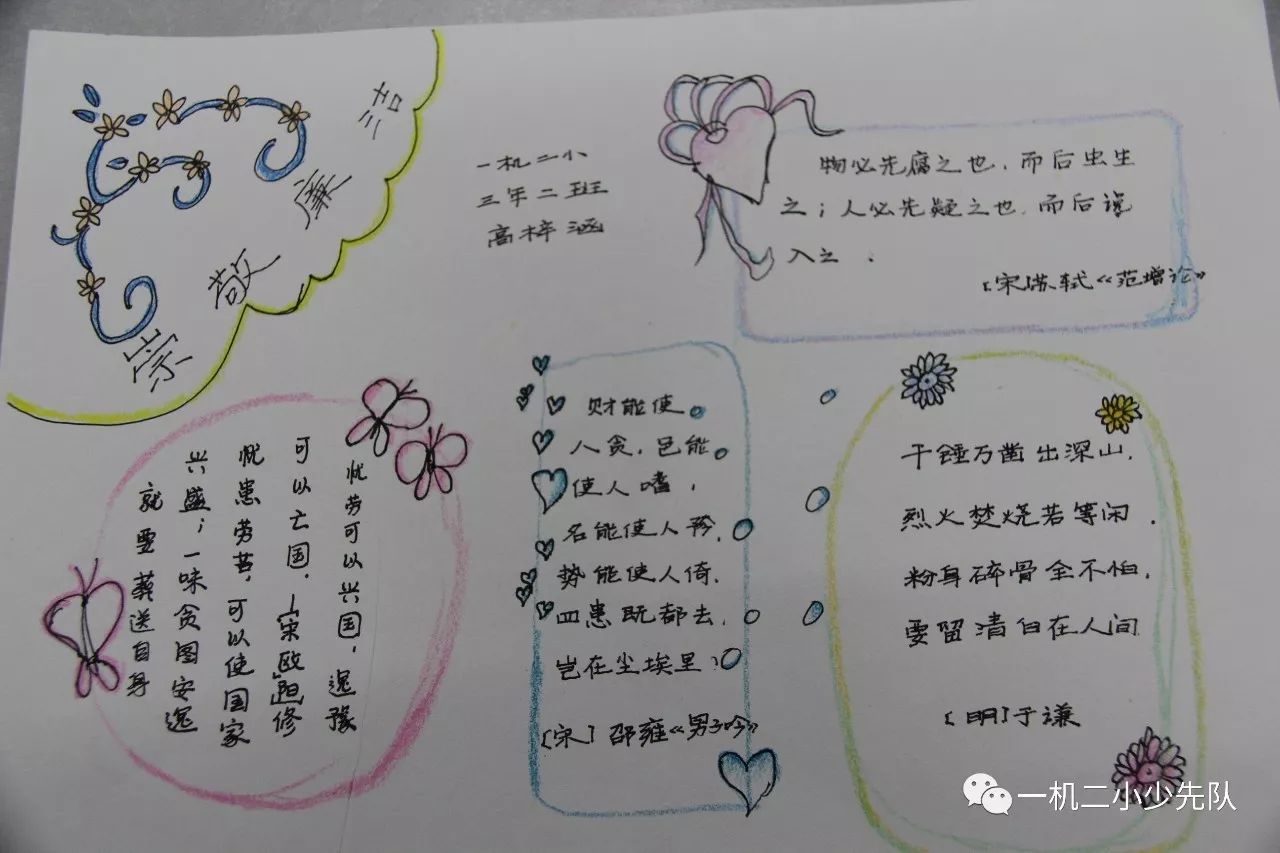 崇敬廉洁
一机二小
三年二班
高梓涵
物必先腐之也,而后虫生
之;人必先疑之也,而后谗
入之。
[宋苏轼《范增论》
忧劳可以兴国,逸豫
可以亡国,—[宋]欧阳修
忧患劳苦,可以使国家
兴盛;一味贪图安逸
就要葬送自身
财能使
人贪,色能
使人嗜,
名能使人矜,
势能使人倚,
四患既都去,
岂在尘埃里?
[宋]邵雍《男子吟》
千锤万凿出深山,
烈火焚烧若等闲,
粉身碎骨全不怕,
要留清白在人间
[明]于谦
一机二小少先队